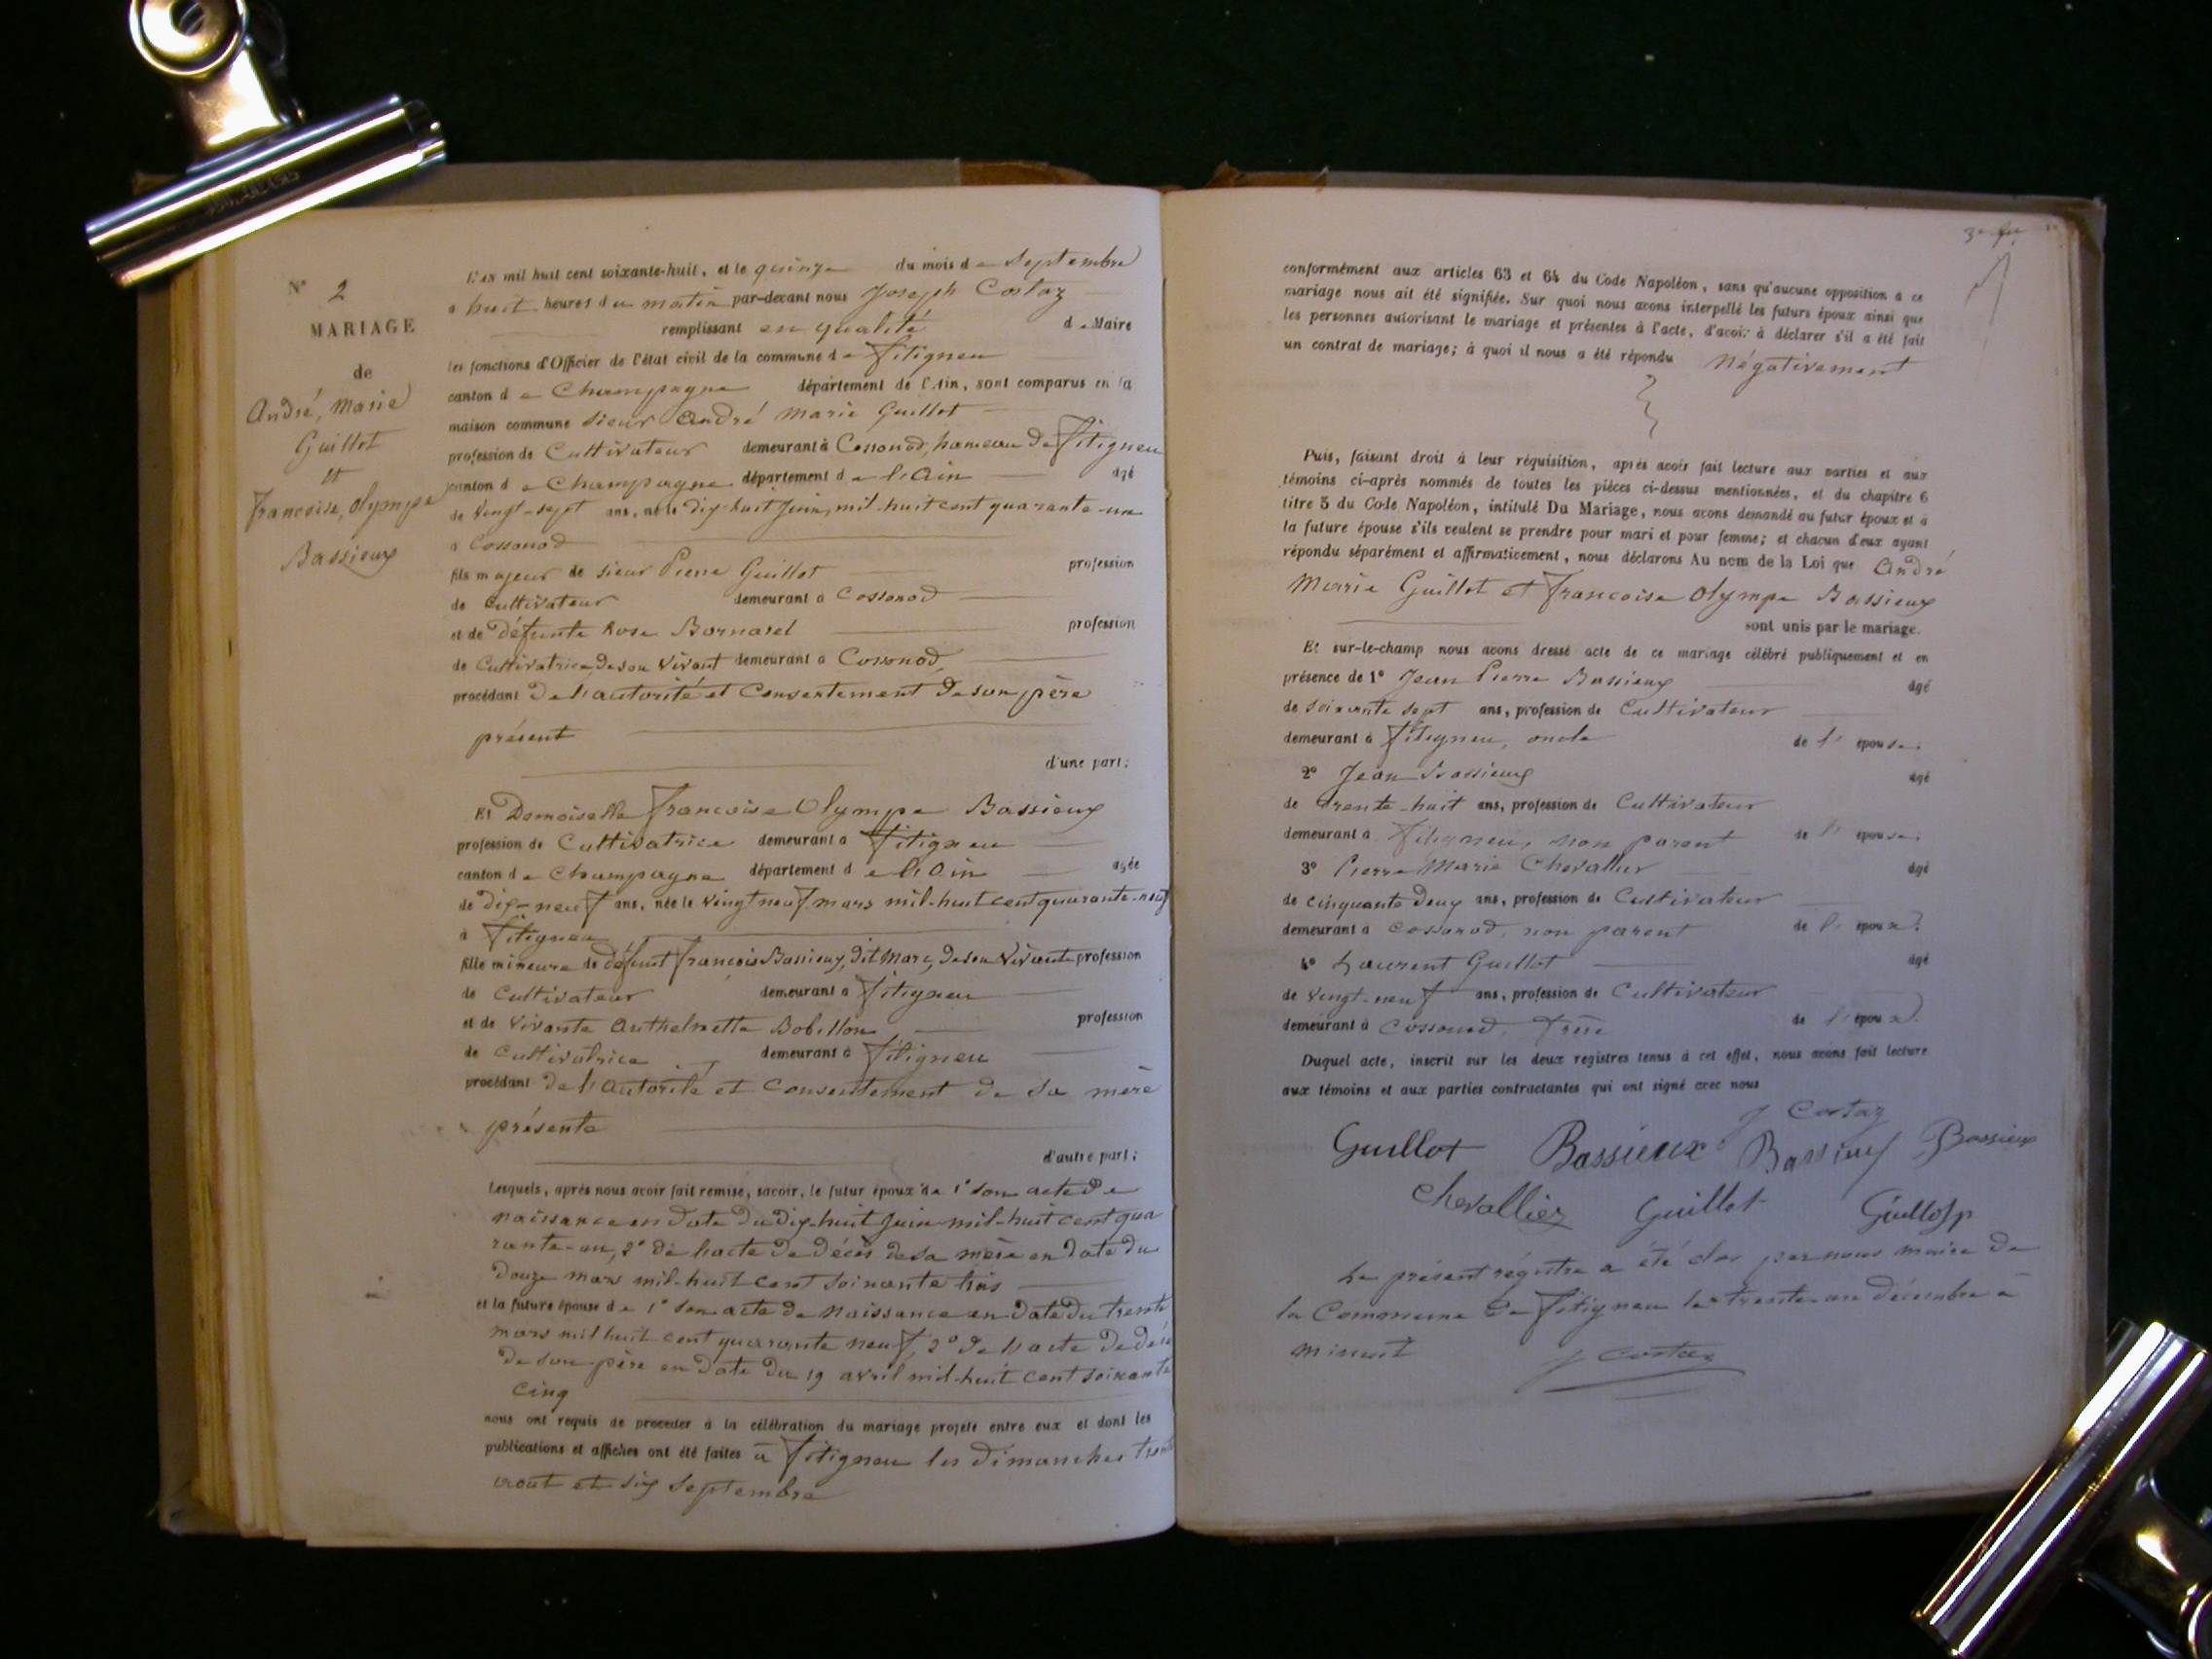 N° 2
MARIAGE
de
André, Marie
Guillot
et
Francoise, Olympe
Bassieux
L'an mil huit cent soixante-huit, et le quinze du mois de Septembre
a huit heures du matin par-devant nous Joseph Costaz
remplissant en qualité de Maire
les fonctions d'Officier de l'état civil de la commune de Fitigneu
canton de Champagne département de l'Ain, sont comparus en la
maison commune sieur André Marie Guillot
profession de Cultivateur demeurant à Cossonod, hameau de Fitigneu
canton de Champagne département de l'Ain âgé
de vingt-sept ans, né le dix huit Juin, mil-huit cent quarante-un
à Cossonod
fils majeur de sieur Pierre Guillot profession
de Cultivateur demeurant à Cossonod
et de défunte Rose Bornarel profession
de Cultivatrice de son vivant demeurant à Cossonod,
procédant de l'autorité et Consentement de son père
présent
d'une part;
Et Demoiselle Francoise Olympe Bassieux
profession de Cultivatrice demeurant à Fitigneu
canton de Champagne département de l'Ain agée
de dix-neuf ans, née le vingt neuf mars mil-huit cent quarante-neuf
à Fitigneu
fille mineure de défunt François Bassieux, dit Marc, de son vivant profession
de Cultivateur demeurant à Fitigneu
et de vivante Anthelmette Bobillon profession
de Cultivatrice demeurant à Fitigneu
procédant de l'autorité et Consentement de sa mère
présente
d'autre part;
Lesquels, après nous avoir fait remise, savoir, le futur époux de 1° son acte de
naissance en date du dix-huit Juin mil-huit cent qua
rante-un, 2° de l'acte de décès de sa mère en date du
douze mars mil-huit cent soixante trois
et la future épouse de 1° son acte de naissance en date du trente
mars mil huit cent quarante neuf, 2° de l'acte de décè
de son père en date du 19 avril mil-huit cent soixante
cinq
nous ont requis de procéder à la célébration du mariage projeté entre eux et dont les
publications et affiches ont été faites à Fitigneu les dimanches trente
aout et six septembre
conformément aux articles 63 et 64 du Code Napoléon, sans qu'aucune opposition à ce
mariage nous ait été signifiée. Sur quoi nous avons interpellé les futurs époux ainsi que
les personnes autorisant le mariage et présentes à l'acte, d'avoir à déclarer s'il a été fait
un contrat de mariage; à quoi il nous a été répondu Négativement
Puis, faisant droit à leur réquisition, après avoir fait lecture aux parties et aux
témoins ci-après nommés de toutes les pièces ci-dessus mentionnées, et du chapitre 6
titre 5 du Code Napoléon, intitulé Du Mariage, nous avons demandé au futur époux et à
la future épouse s'ils veulent se prendre pour mari et pour femme; et chacun d'eux ayant
répondu séparément et affirmativement, nous déclarons Au nom de la Loi que André
Marie Guillot et Francoise Olympe Bassieux
sont unis par le mariage.
Et sur-le-champ nous avons dressé acte de ce mariage célébré publiquement et en
présence de 1° Jean Pierre Bassieux âgé
de soixante sept ans, profession de Cultivateur
demeurant à Fitigneu, oncle de l'épouse.
2° Jean Bassieux âgé
de trente-huit ans, profession de Cultivateur
demeurant à Fitigneu, non parent de l'épouse.
3° Pierre Marie Chevallier âgé
de cinquante deux ans, profession de Cultivateur
demeurant à Cossonod, non parent de l'époux.
4° Laurent Guillot âgé
de vingt-neuf ans, profession de Cultivateur
demeurant à Cossonod, frère de l'époux.
Duquel acte, inscrit sur les deux registres tenus à cet effet, nous avons fait lecture
aux témoins et aux parties contractantes qui ont signé avec nous
J Costaz
Guillot Bassieux Bassieux Bassieux
Chevallier Guillot Guillot p
Le présent régistre a été clos par nous maire de
la Commune de Fitigneu le trente-un décembre à
minuit J Costaz